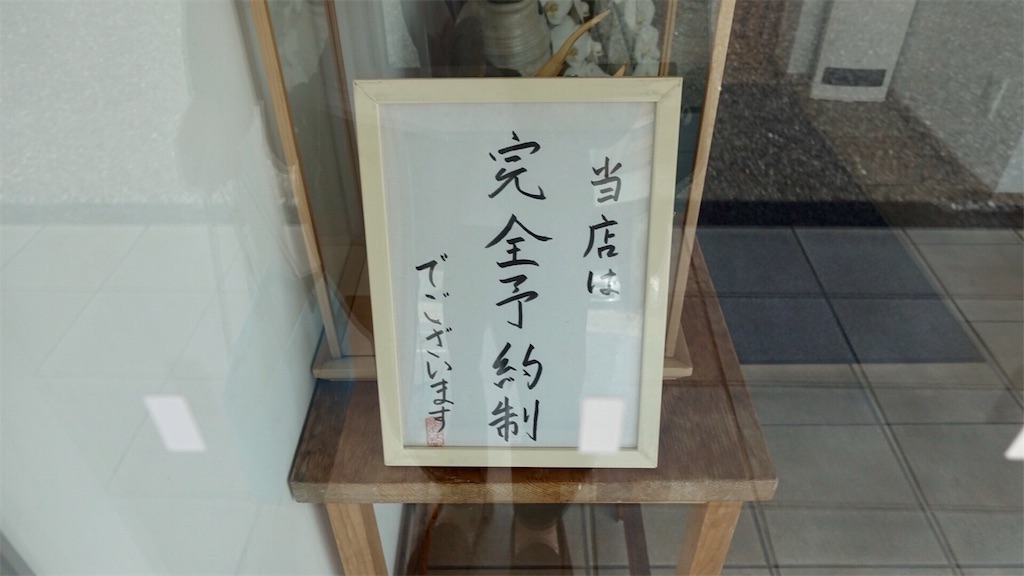 当店は
完全予約制
でございます